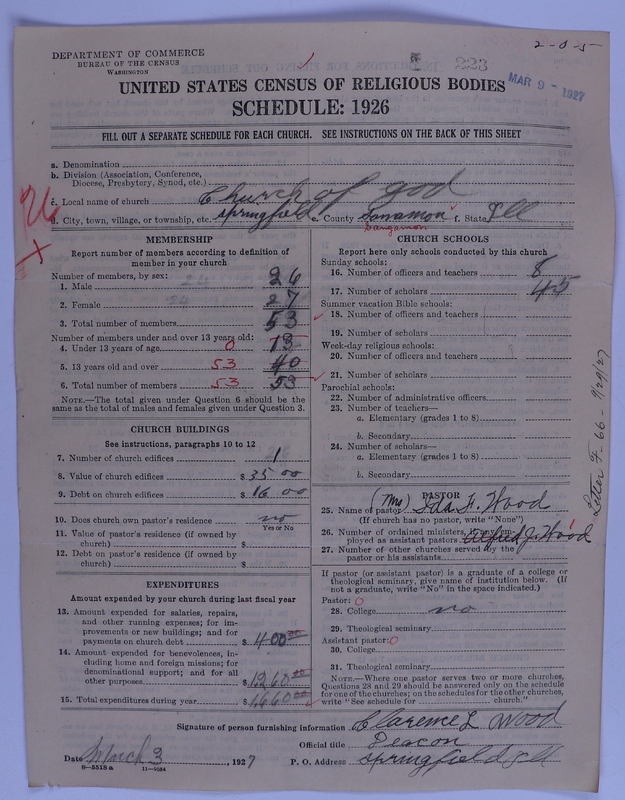 2-0-5
DEPARTMENT OF COMMERCE
BUREAU OF THE CENSUS
WASHINGTON
223
MAR 9 - 1927
UNITED STATES CENSUS OF RELIGIOUS BODIES
SCHEDULE: 1926
FILL OUT A SEPARATE SCHEDULE FOR EACH CHURCH. SEE INSTRUCTIONS ON THE BACK OF THIS SHEET
a. Denomination
b. Division (Association, Conference,
Diocese, Presbytery, Synod, etc.)
c. Local name of church Church of god
d. City, town, village, or township, etc. Springfield e. County Sanamon f. State Ill
Sangamon
MEMBERSHIP
Report number of members according to definition of
member in your church
Number of members, by sex:
1. Male 26
2. Female 27
3. Total number of members 53
Number of members under and over 13 years old:
4. Under 13 years of age 0 13
5. 13 years old and over 53 40
6. Total number of members 53 53
NOTE.—The total given under Question 6 should be
same as the total of males and females given under Question 3.
CHURCH BUILDINGS
See instructions, paragraphs 10 to 12
7. Number of church edifices 1
8. Value of church edifices $ 35 00
9. Debt on church edifices $ 16 00
10. Does church own pastor's residence no
Yes or No
11. Value of pastor's residence (if owned by
church) $
12. Debt on pastor's residence (if owned by
church) $
EXPENDITURES
Amount expended by your church during last fiscal year
13. Amount expended for salaries, repairs,
and other running expenses; for im-
provements or new buildings; and for
payments on church debt $ 400 00
14. Amount expended for benevolences, in-
cluding home and foreign missions; for
denominational support; and for all
other purposes $ 1260 00
15. Total expenditures during year $ 1660 00
CHURCH SCHOOLS
Report here only schools conducted by this church
Sunday schools:
16. Number of officers and teachers 8
17. Number of scholars 45
Summer vacation Bible schools:
18. Number of officers and teachers
19. Number of scholars
Week-day religious schools:
20. Number of officers and teachers
21. Number of scholars
Parochial schools:
22. Number of administrative officers
23. Number of teachers—
a. Elementary (grades 1 to 8)
b. Secondary
24. Number of scholars—
a. Elementary (grades 1 to 8)
b. Secondary
PASTOR
25. Name of pastor (Mrs) Ida F. Wood
(If church has no pastor, write "None")
26. Number of ordained ministers
ployed as assistant pastors Alfred J. Wood
27. Number of other churches served by the
pastor or his assistants
If pastor (or assistant pastor) is a graduate of a college or
theological seminary, give name of institution below. (If
not a graduate, write "No" in the space indicated.)
Pastor: 0
28. College no
29. Theological seminary
Assistant pastor: 0
30. College
31. Theological seminary
NOTE.—Where one pastor serves two or more churches,
Questions 28 and 29 should be answered only on the schedule
for one of the churches; on the schedules for the other churches,
write "See schedule for church."
Letter F-66-9/29/27
Signature of person furnishing information Clarence L Wood
Official title Deacon
Date March 3, 1927 P. O. Address Springfield Ill
8-5518a 11-9084